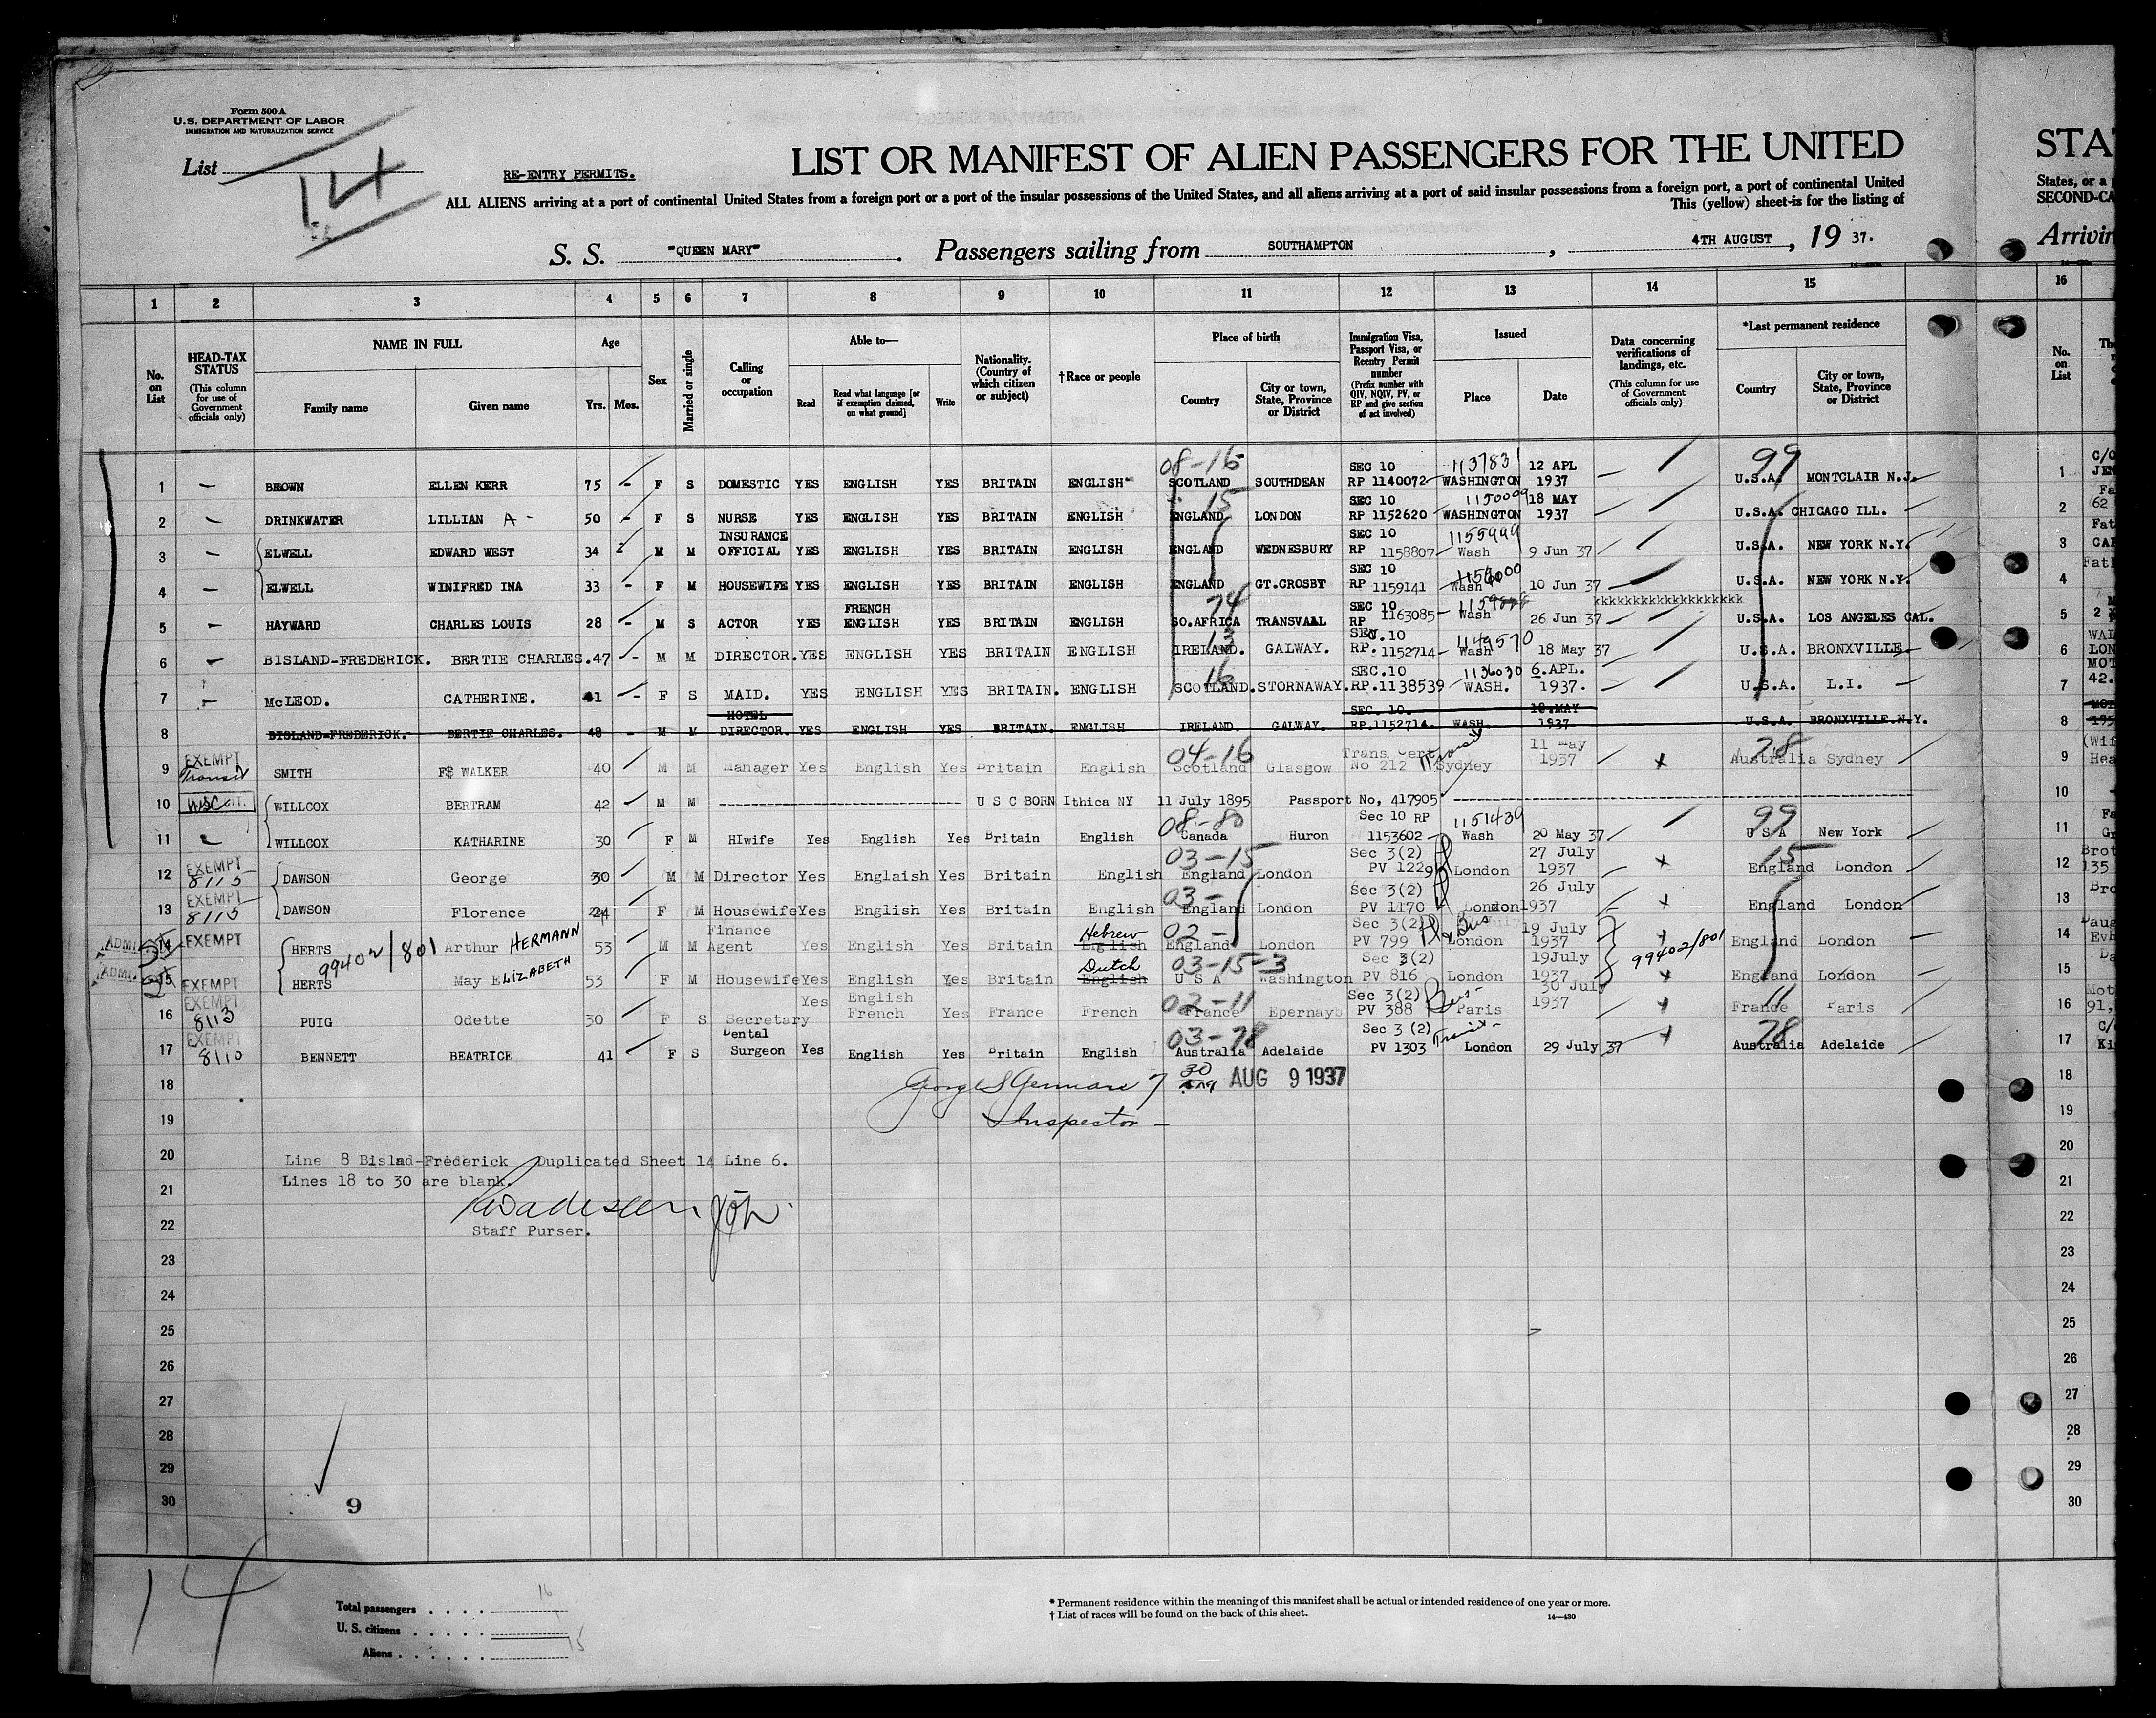 Form 500 A
U.S. DEPARTMENT OF LABOR
IMMIGRATION AND NATURALIZATION SERVICE
List 14
RE-ENTRY PERMITS.
LIST OR MANIFEST OF ALIEN PASSENGERS FOR THE UNITED
STA
ALL ALIENS arriving at a port of continental United States from a foreign port or a port of the insular possessions of the United States, and all aliens arriving at a port of said insular possessions from a foreign port, a port of continental United
States, or a
This (yellow) sheet is for the listing of
SECOND-CA
S. S. "QUEEN MARY" . Passengers sailing from SOUTHAMPTON , 4TH AUGUST , 19 37.
Arrivin
1 2 3 4 5 6 7 8 9 10 11 12 13 14 15 16
No. on List
HEAD-TAX STATUS (This column for use of Government officials only)
NAME IN FULL Family name Given name
Age Yrs. Mos.
Sex
Married or single
Calling or occupation
Able to— Read Read what language [or if exemption claimed, on what ground] Write
Nationality. (Country of which citizen or subject)
†Race or people
Place of birth Country City or town, State, Province or District
Immigration Visa, Passport Visa, or Reentry Permit number (Prefix number with QIV, NQIV, PV, or RP and give section of act involved)
Issued Place Date
Data concerning verifications of landings, etc. (This column for use of Government officials only)
*Last permanent residence Country City or town, State, Province or District
No. on List
08-16 SEC 10 1137831 12 APL 99
1 — BROWN ELLEN KERR 75 - F S DOMESTIC YES ENGLISH YES BRITAIN ENGLISH SCOTLAND SOUTHDEAN RP 1140072 WASHINGTON 1937 U.S.A. MONTCLAIR N.J. 1
15 SEC 10 1150009 18 MAY
2 — DRINKWATER LILLIAN A - 50 - F S NURSE YES ENGLISH YES BRITAIN ENGLISH ENGLAND LONDON RP 1152620 WASHINGTON 1937 U.S.A. CHICAGO ILL. 2
INSURANCE SEC 10 1155999
3 — ELWELL EDWARD WEST 34 M M OFFICIAL YES ENGLISH YES BRITAIN ENGLISH ENGLAND WEDNESBURY RP 1158807 Wash 9 Jun 37 U.S.A. NEW YORK N.Y. 3
SEC 10
4 — ELWELL WINIFRED INA 33 - F M HOUSEWIFE YES ENGLISH YES BRITAIN ENGLISH ENGLAND GT.CROSBY RP 1159141 Wash 10 Jun 37 U.S.A. NEW YORK N.Y. 4
FRENCH 74 SEC 10 kkkkkkkkkkkkkkkkkkk
5 — HAYWARD CHARLES LOUIS 28 - M S ACTOR YES ENGLISH YES BRITAIN ENGLISH SO.AFRICA TRANSVAAL RP 1163085 Wash 26 Jun 37 U.S.A. LOS ANGELES CAL. 5
13 SEC.10 1149570
6 — BISLAND-FREDERICK. BERTIE CHARLES. 47 - M M DIRECTOR. YES ENGLISH YES BRITAIN ENGLISH IRELAND. GALWAY. RP. 1152714 Wash 18 May 37 U.S.A. BRONXVILLE 6
16 SEC.10 1136030 6.APL.
7 — McLEOD. CATHERINE. 41 - F S MAID. YES ENGLISH YES BRITAIN. ENGLISH SCOTLAND. STORNAWAY. RP.1138539 WASH. 1937. U.S.A. L.I. 7
HOTEL SEC. 10. 18.MAY
8 BISLAND-FREDERICK. BERTIE CHARLES. 48 - M M DIRECTOR. YES ENGLISH YES BRITAIN. ENGLISH IRELAND. GALWAY. RP.1152714. WASH. 1937 U.S.A. BRONXVILLE.N.Y. 8
EXEMPT 04-16 Trans. Cert 11 May 78
9 Transit SMITH F$ WALKER 40 M M Manager Yes English Yes Britain English Scotland Glasgow No 212 Sydney 1937 x Australia Sydney 9
10 WILLCOX BERTRAM 42 M M U S C BORN Ithica NY 11 July 1895 Passport No, 417905 10
08-80 Sec 10 RP 1151439 99
11 WILLCOX KATHARINE 30 F M HIwife Yes English Yes Britain English Canada Huron 1153602 Wash 20 May 37 U S A New York 11
EXEMPT 03-15 Sec 3(2) 27 July 15
12 8115 DAWSON George 30 M M Director Yes Englaish Yes Britain English England London PV 1229 London 1937 x England London 12
EXEMPT 03- Sec 3(2) 26 July
13 8115 DAWSON Florence 24 F M Housewife Yes English Yes Britain English England London PV 1170 London 1937 x England London 13
ADMI EXEMPT Finance Hebrew 02- Sec 3(2) Bus 19 July
14 HERTS Arthur HERMANN 53 M M Agent Yes English Yes Britain English England London PV 799 London 1937 x England London 14
99402/801 99402/801
ADMI. Dutch 03-15-3 Sec 3(2) 19July
15 EXEMPT HERTS May ELIZABETH 53 F M Housewife Yes English Yes Britain English U S A Washington PV 816 London 1937 x England London 15
EXEMPT Yes English 02-11 Sec 3(2) Bus- 30 July 11
16 8113 PUIG Odette 30 F S Secretary French Yes France French France Epernayb PV 388 Paris 1937 x France Paris 16
EXEMPT Dental 03-78 Sec 3 (2) 78
17 8110 BENNETT BEATRICE 41 F S Surgeon Yes English Yes Britain English Australia Adelaide PV 1303 London 29 July 37 x Australia Adelaide 17
18 AUG 9 1937 18
19 Inspector 19
20 Line 8 Bislad-Frederick Duplicated Sheet 14 Line 6. 20
21 Lines 18 to 30 are blank. 21
22 Staff Purser. 22
23 23
24 24
25 25
26 26
27 27
28 28
29 29
30 9 30
14
Total passengers . . . . 16
U. S. citizens . . . . .
Aliens . . . . . . 15
* Permanent residence within the meaning of this manifest shall be actual or intended residence of one year or more.
† List of races will be found on the back of this sheet.
14—430